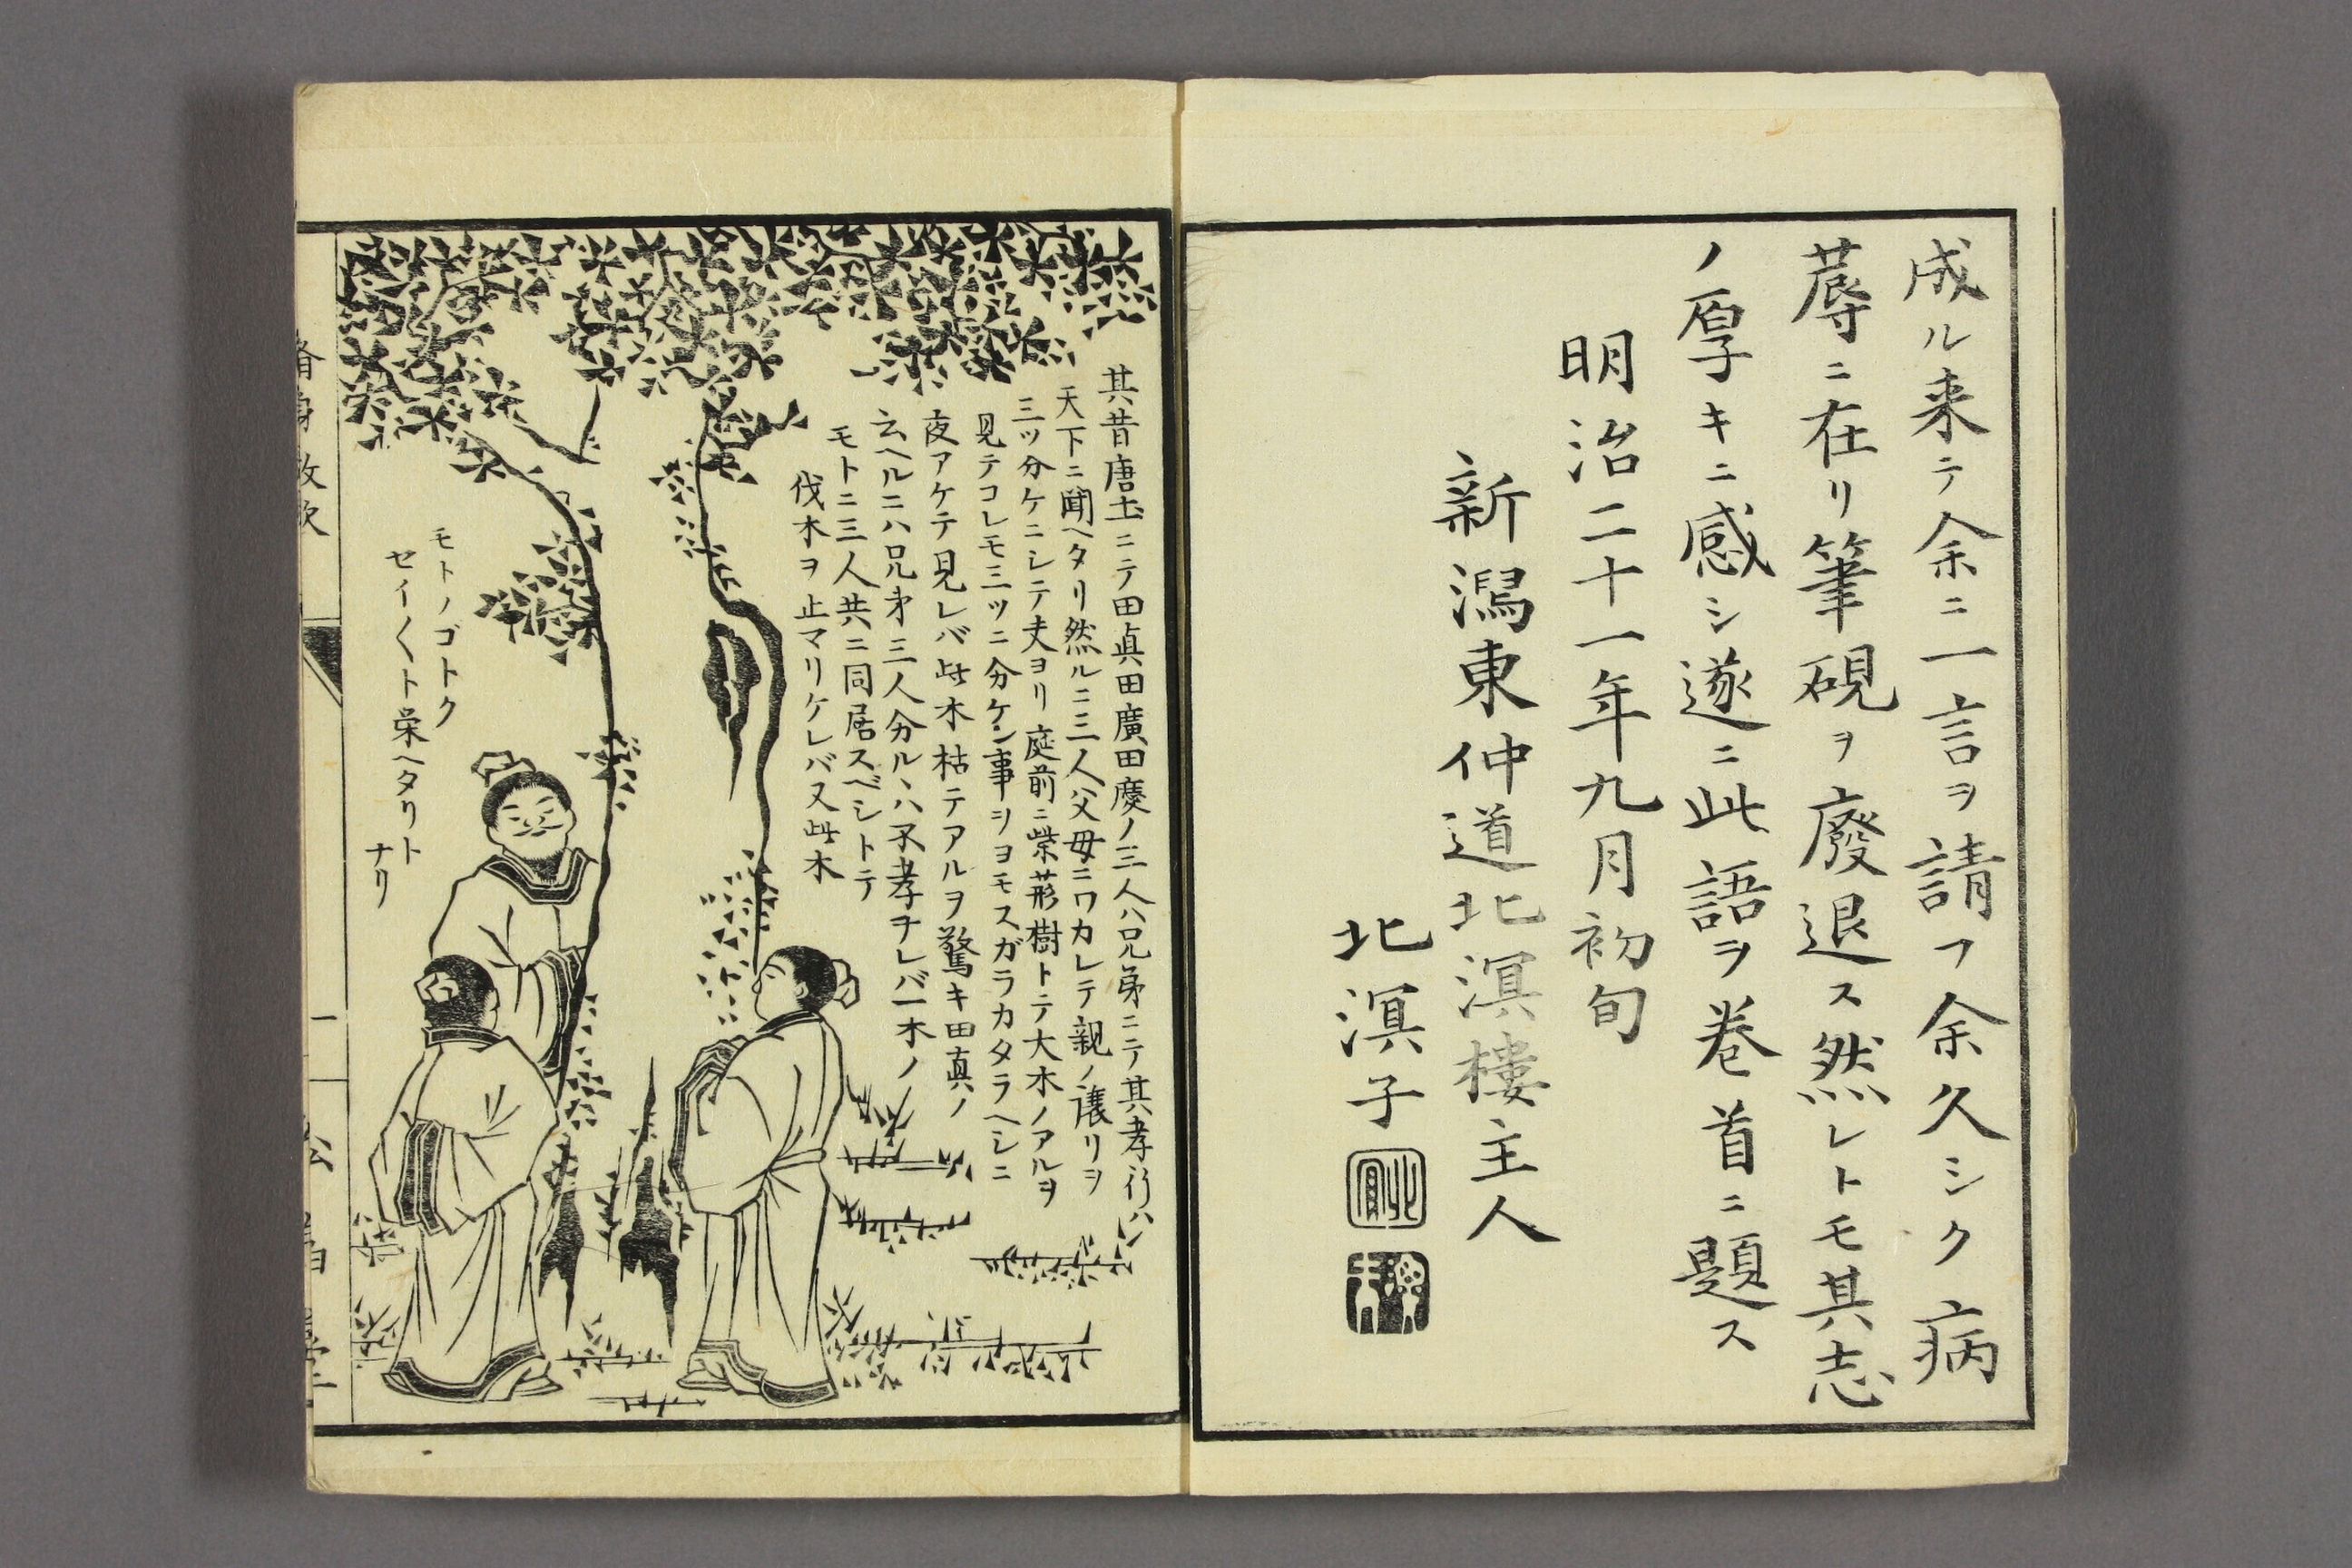 成ル来テ余ニ一言ヲ請フ余久シク病
蓐ニ在リ筆硯ヲ廢退ス然レトモ其志
ノ厚キニ感シ遂ニ此語ヲ巻首ニ題ス
明治二十一年九月初旬
新潟東仲道北溟樓主人
北溟子
其昔唐土ニテ田眞田廣田慶ノ三人ハ兄弟ニテ其孝行ハ
天下ニ聞ヘタリ然ルニ三人父母ニワカレテ親ノ讓リヲ
三ツ分ケニシテ夫ヨリ庭前ニ柴荊樹トテ大木ノアルヲ
見テコレモ三ツニ分ケン事ヲヨモスガラカタラヘシニ
夜アケテ見レバ此木枯テアルヲ驚キ田真ノ
云ヘルニハ兄弟三人分ルヽハ不孝ヲナレバ一木ノ
モトニ三人共ニ同居スベシトテ
伐木ヲ止マリケレバ又此木
モトノゴトク
セイ〱ト栄ヘタリト
ナリ